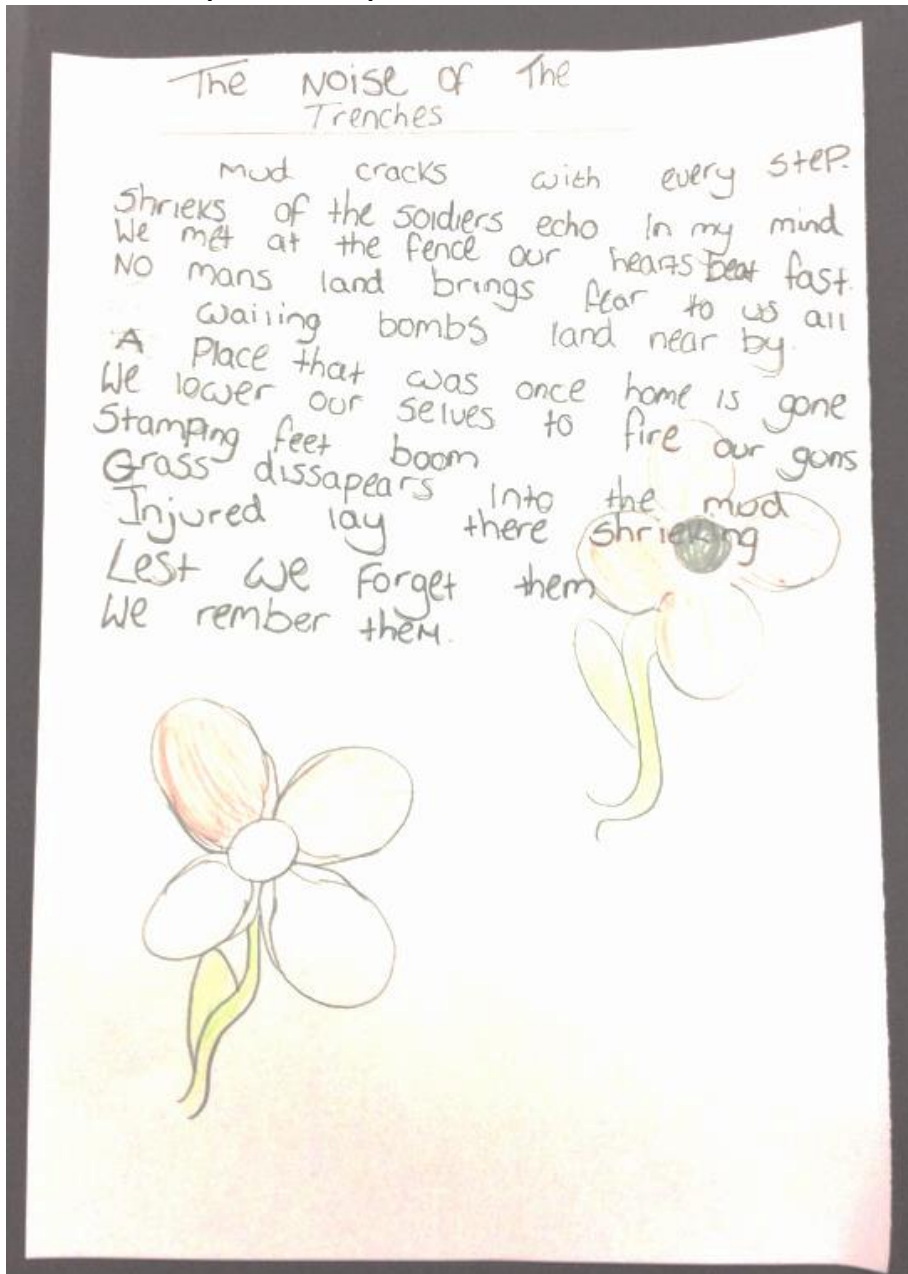 The Noise of The
Trenches
Mud cracks with every step.
Shrieks of the soldiers echo in my mind
We met at the fence our hearts beat fast.
No mans land brings fear to us all
Wailing bombs land near by.
A Place that was once home is gone
We lower our selves to fire our guns
Stamping feet boom
Grass dissapears into the mud
Injured lay there shrieking
Lest we Forget them
We rember them.